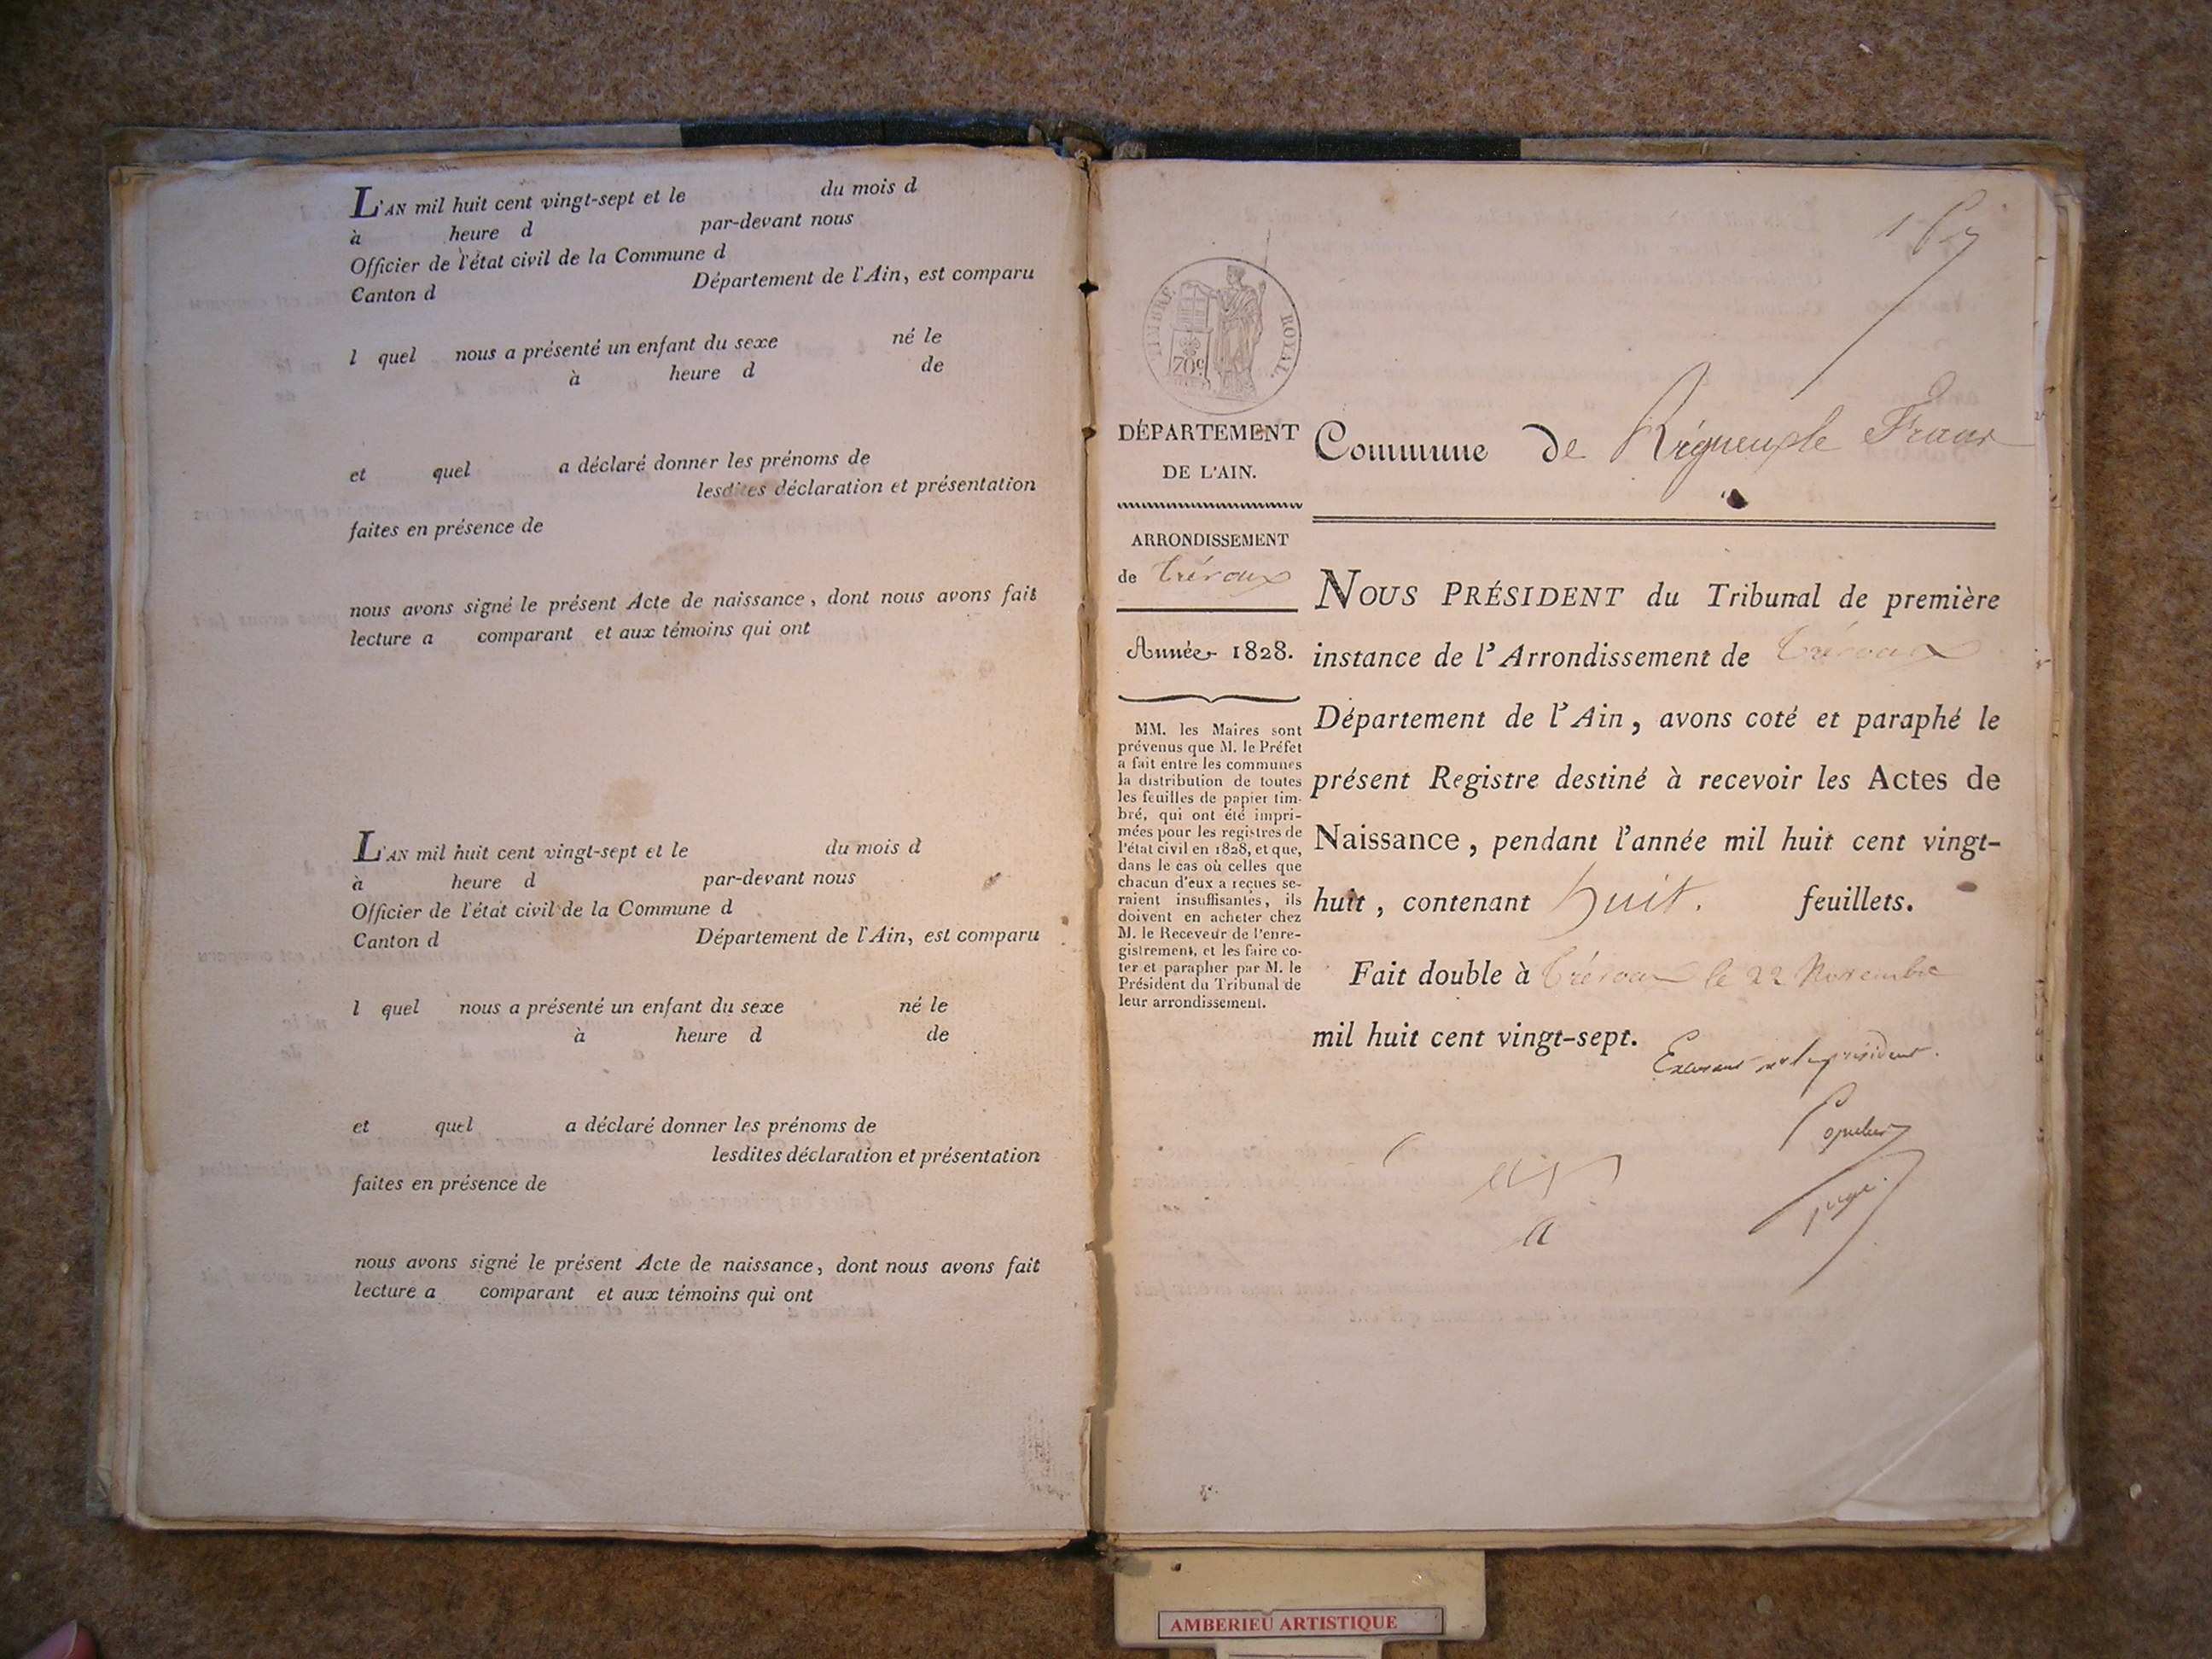 L'AN mil huit cent vingt-sept et le du mois d
à heure d par-devant nous
Officier de l'état civil de la Commune d
Canton d Département de l'Ain, est comparu
l quel nous a présenté un enfant du sexe né le
à heure d de
et quel a déclaré donner les prénoms de
lesdites déclaration et présentation
faites en présence de
nous avons signé le présent Acte de naissance, dont nous avons fait
lecture a comparant et aux témoins qui ont
L'AN mil huit cent vingt-sept et le du mois d
à heure d par-devant nous
Officier de l'état civil de la Commune d
Canton d Département de l'Ain, est comparu
l quel nous a présenté un enfant du sexe né le
à heure d de
et quel a déclaré donner les prénoms de
lesdites déclaration et présentation
faites en présence de
nous avons signé le présent Acte de naissance, dont nous avons fait
lecture a comparant et aux témoins qui ont
TIMBRE ROYAL
70c
DÉPARTEMENT
DE L'AIN.
ARRONDISSEMENT
de Trévoux
Année 1828.
MM. les Maires sont
prévenus que M. le Préfet
a fait entre les communes
la distribution de toutes
les feuilles de papier tim-
bré, qui ont été impri-
mées pour les registres de
l'état civil en 1828, et que,
dans le cas où celles que
chacun d'eux a reçues se-
raient insuffisantes, ils
doivent en acheter chez
M. le Receveur de l'enre-
gistrement, et les faire co-
ter et parapher par M. le
Président du Tribunal de
leur arrondissement.
Commune de Rigneux le Franc
NOUS PRÉSIDENT du Tribunal de première
instance de l'Arrondissement de Trévoux
Département de l'Ain, avons coté et paraphé le
présent Registre destiné à recevoir les Actes de
Naissance, pendant l'année mil huit cent vingt-
huit, contenant huit. feuillets.
Fait double à Trévoux le 22 Novembre
mil huit cent vingt-sept.
président.
juge.
AMBERIEU ARTISTIQUE